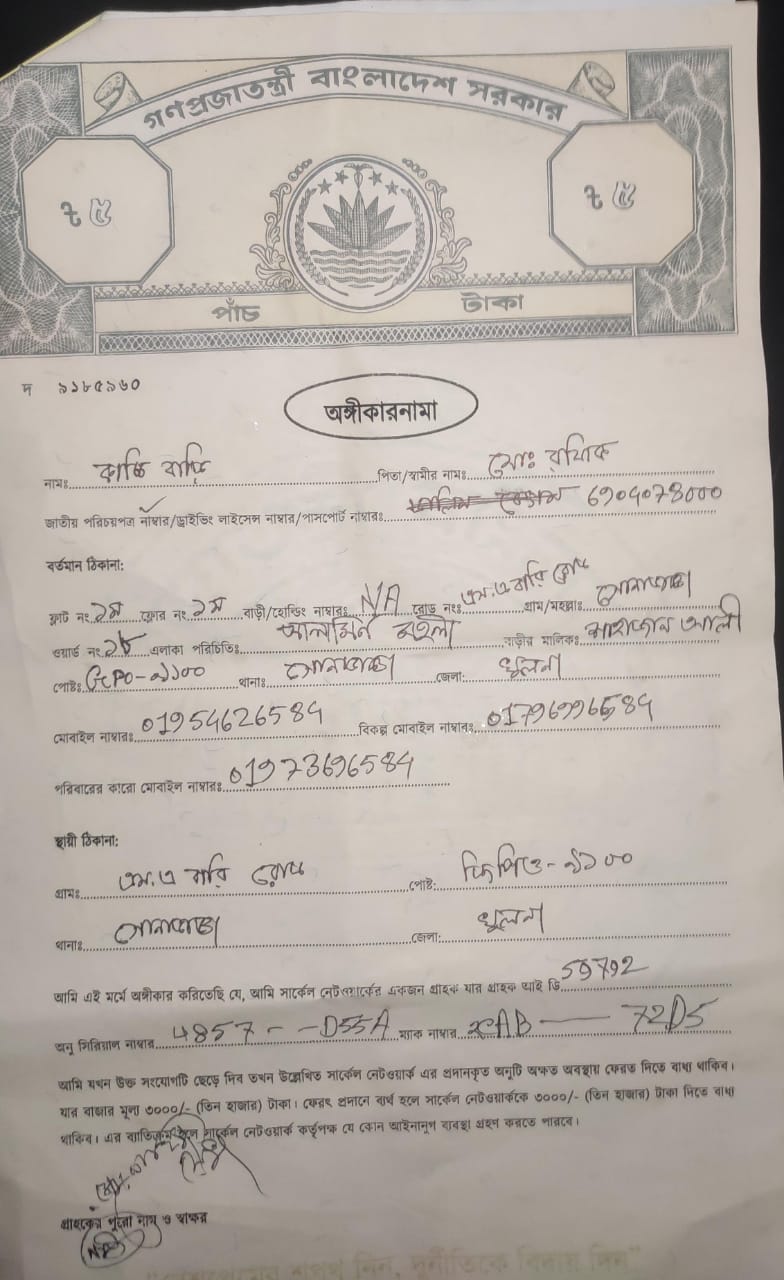 গণপ্রজাতন্ত্রী বাংলাদেশ সরকার
৳ ৫ ৳ ৫
পাঁচ টাকা
দ ৯১৮৫৯৬০
অঙ্গীকারনামা
নামঃ পিতা/স্বামীর নামঃ মোঃ রফিক
জাতীয় পরিচয়পত্র নাম্বার/ড্রাইভিং লাইসেন্স নাম্বার/পাসপোর্ট নাম্বারঃ
বর্তমান ঠিকানা:
ফ্লাট নং ১ম ফ্লোর নং ১ম বাড়ী/হোল্ডিং নাম্বারঃ N/A রোড নংঃ এম.এ বারি রোড গ্রাম/মহল্লাঃ সোনাডাঙ্গা
ওয়ার্ড নং ১৮ এলাকা পরিচিতিঃ আলামিন মহল্লা বাড়ীর মালিকঃ আলী
পোষ্টঃ GPO-৯১০০ থানাঃ সোনাডাঙ্গা জেলা: খুলনা
মোবাইল নাম্বারঃ 01954626584 বিকল্প মোবাইল নাম্বারঃ
পরিবারের কারো মোবাইল নাম্বারঃ 01973696584
স্থায়ী ঠিকানা:
গ্রামঃ এম.এ বারি রোড পোষ্ট: জিপিও-৯১০০
থানাঃ সোনাডাঙ্গা জেলা: খুলনা
আমি এই মর্মে অঙ্গীকার করিতেছি যে, আমি সার্কেল নেটওয়ার্কের একজন গ্রাহক যার গ্রাহক আই ডি
অনু সিরিয়াল নাম্বার 4857--D55A ম্যাক নাম্বার 72D5
আমি যখন উক্ত সংযোগটি ছেড়ে দিব তখন উল্লেখিত সার্কেল নেটওয়ার্ক এর প্রদানকৃত অনুটি অক্ষত অবস্থায় ফেরত দিতে বাধ্য থাকিব।
যার বাজার মূল্য ৩০০০/- (তিন হাজার) টাকা। ফেরৎ প্রদানে ব্যর্থ হলে সার্কেল নেটওয়ার্ককে ৩০০০/- (তিন হাজার) টাকা দিতে বাধ্য
থাকিব। এর ব্যতিক্রম হলে সার্কেল নেটওয়ার্ক কর্তৃপক্ষ যে কোন আইনানুগ ব্যবস্থা গ্রহণ করতে পারবে।
গ্রাহকের পুরো নাম ও স্বাক্ষর
শপথ নিন, দুর্নীতিকে বিদায় দিন"